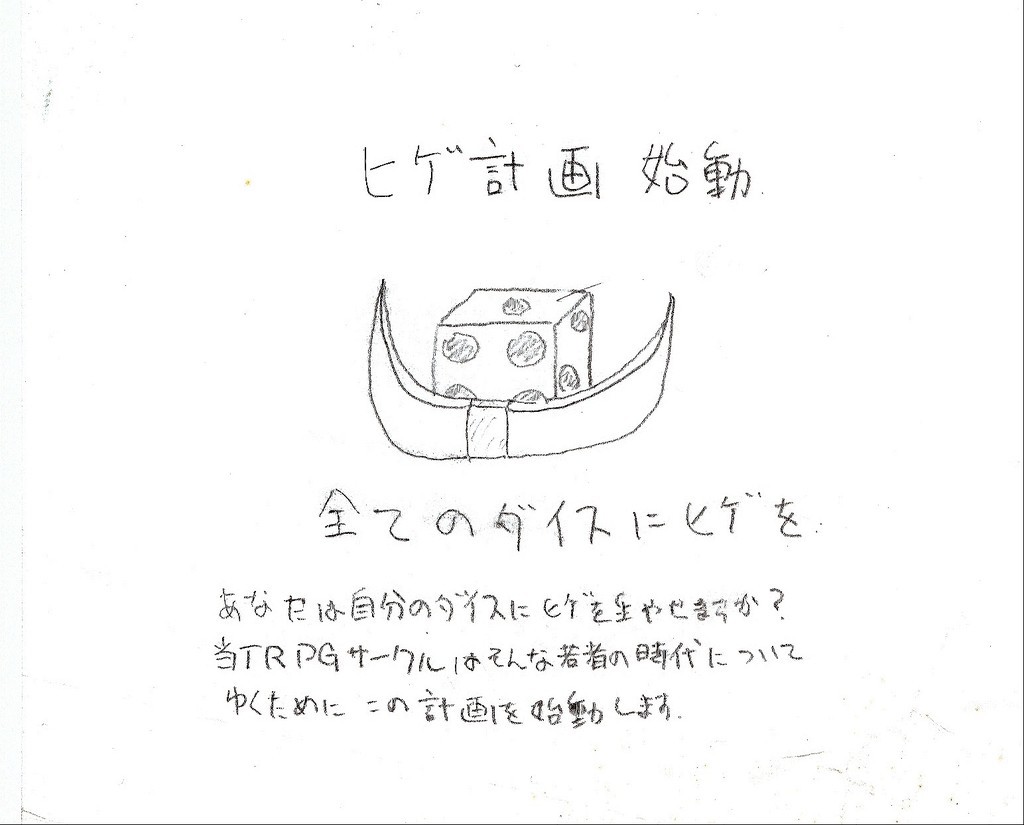 ヒゲ計画 始動
全てのダイスにヒゲを
あなたは自分のダイスにヒゲを生やせますか?
当TRPGサークルはそんな若者の時代について
ゆくために この計画を始動します.